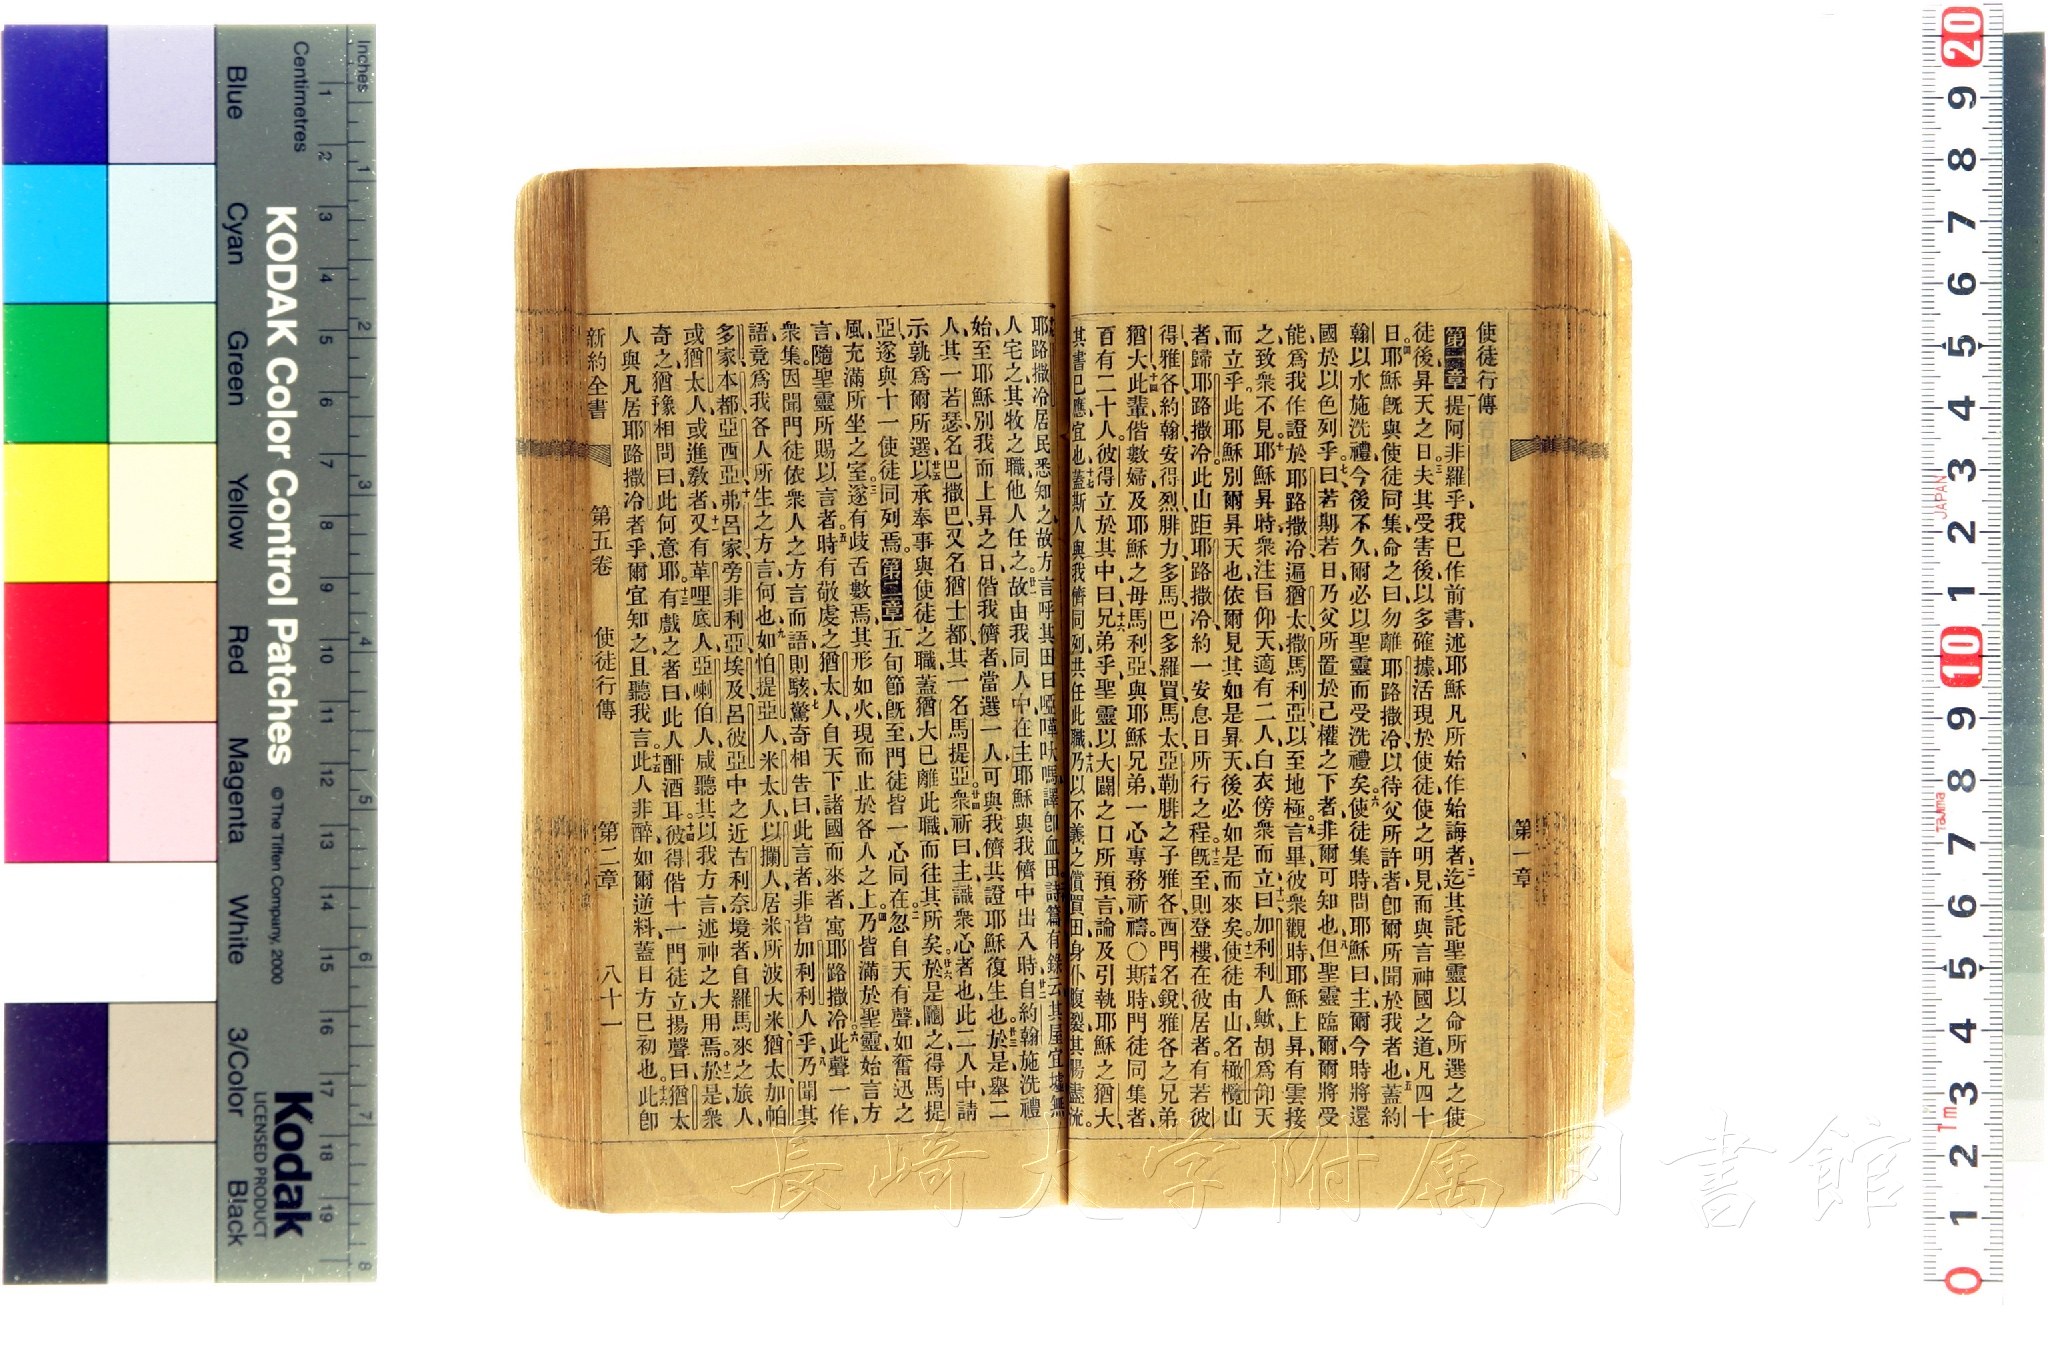 使徒行傳
第一章提阿非羅乎我已作前書述耶穌凡所始作始誨者迄其託聖靈以命所選之使
徒後昇天之日夫其受害後以多確據活現於使徒使之明見而與言神國之道凡四十
日耶穌旣與使徒同集命之曰勿離耶路撒冷以待父所許者卽爾所聞於我者也蓋約
翰以水施洗禮今後不久爾必以聖靈而受洗禮矣使徒集時問耶穌曰主爾今時將還
國於以色列乎曰若期若日乃父所置於己權之下者非爾可知也但聖靈臨爾爾將受
能爲我作證於耶路撒冷遍猶太撒馬利亞以至地極言畢彼衆觀時耶穌上昇有雲接
之致衆不見耶穌昇時衆注目仰天適有二人白衣傍衆而立曰加利利人歟胡爲仰天
而立乎此耶穌別爾昇天也依爾見其如是昇天後必如是而來矣使徒由山名橄欖山
者歸耶路撒冷此山距耶路撒冷約一安息日所行之程旣至則登樓在彼居者有若彼
得雅各約翰安得烈腓力多馬巴多羅買馬太亞勒腓之子雅各西門名銳雅各之兄弟
猶大此輩偕數婦及耶穌之母馬利亞與耶穌兄弟一心專務祈禱〇斯時門徒同集者
百有二十人彼得立於其中曰兄弟乎聖靈以大闢之口所預言論及引執耶穌之猶大
其書已應宜也蓋斯人與我儕同列共任此職乃以不義之償買田身仆腹裂其腸盡流
第一章
耶路撒冷居民悉知之故方言呼其田曰啞嗶吠嗎譯卽血田詩篇有錄云其屋宜墟無
人宅之其牧之職他人任之故由我同人中在主耶穌與我儕中出入時自約翰施洗禮
始至耶穌別我而上昇之日偕我儕者當選一人可與我儕共證耶穌復生也於是舉二
人其一若瑟名巴撒巴又名猶士都其一名馬提亞衆祈曰主識衆心者也此二人中請
示孰爲爾所選以承奉事與使徒之職蓋猶大已離此職而往其所矣於是鬮之得馬提
亞遂與十一使徒同列焉第二章五旬節旣至門徒皆一心同在忽自天有聲如奮迅之
風充滿所坐之室遂有歧舌數焉其形如火現而止於各人之上乃皆滿於聖靈始言方
言隨聖靈所賜以言者時有敬虔之猶太人自天下諸國而來者寓耶路撒冷此聲一作
衆集因聞門徒依衆人之方言而語則駭驚奇相告曰此言者非皆加利利人乎乃聞其
語竟爲我各人所生之方言何也如怕提亞人米太人以攔人居米所波大米猶太加帕
多家本都亞西亞弗呂家旁非利亞埃及呂彼亞中之近古利奈境者自羅馬來之旅人
或猶太人或進教者又有革哩底人亞喇伯人咸聽其以我方言述神之大用焉於是衆
奇之猶豫相問曰此何意耶有戲之者曰此人酣酒耳彼得偕十一門徒立揚聲曰猶太
人與凡居耶路撒冷者乎爾宜知之且聽我言此人非醉如爾逆料蓋日方巳初也此卽
新約全書 第五卷 使徒行傳 第二章 八十一
長崎大学附属図書館
KODAK Color Control Patches
© The Tiffen Company, 2000
Kodak
LICENSED PRODUCT
Inches
Centimetres
Blue
Cyan
Green
Yellow
Red
Magenta
White
3/Color
Black
1 2 3 4 5 6 7 8 9 10 11 12 13 14 15 16 17 18 19
1 2 3 4 5 6 7 8
20 9 8 7 6 5 4 3 2 1 10 9 8 7 6 5 4 3 2 1 0
JAPAN
Tajima